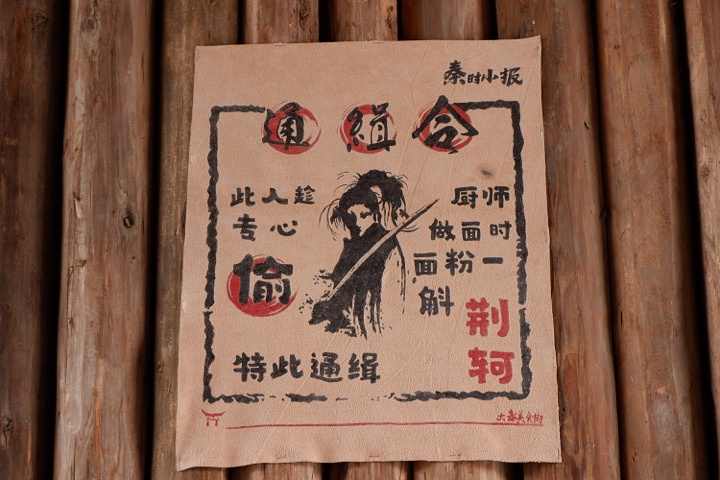 秦时小报
通緝令
此人趁
专心
偷
厨师
做面时
面粉一
斛
荆
轲
特此通缉
大秦美食街